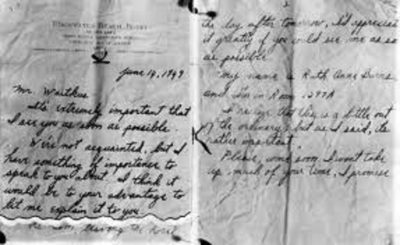 EDGEWATER BEACH HOTEL
June 14, 1949
Mr. Waitkus
Its extremely important that
I see you as soon as possible
We're not acquainted, but I
have something of importance to
speak to you about. I think it
would be to your advantage to
let me explain it to you
the day after tomorrow, I'd appreciate
it greatly if you would see me as soon
as possible
My name is Ruth Anne Burns
and I'm in Room 1297A
I realize that this is a little out
of the ordinary, but as I said, its
rather important
Please, come soon. I won't take
up much of your time, I promise